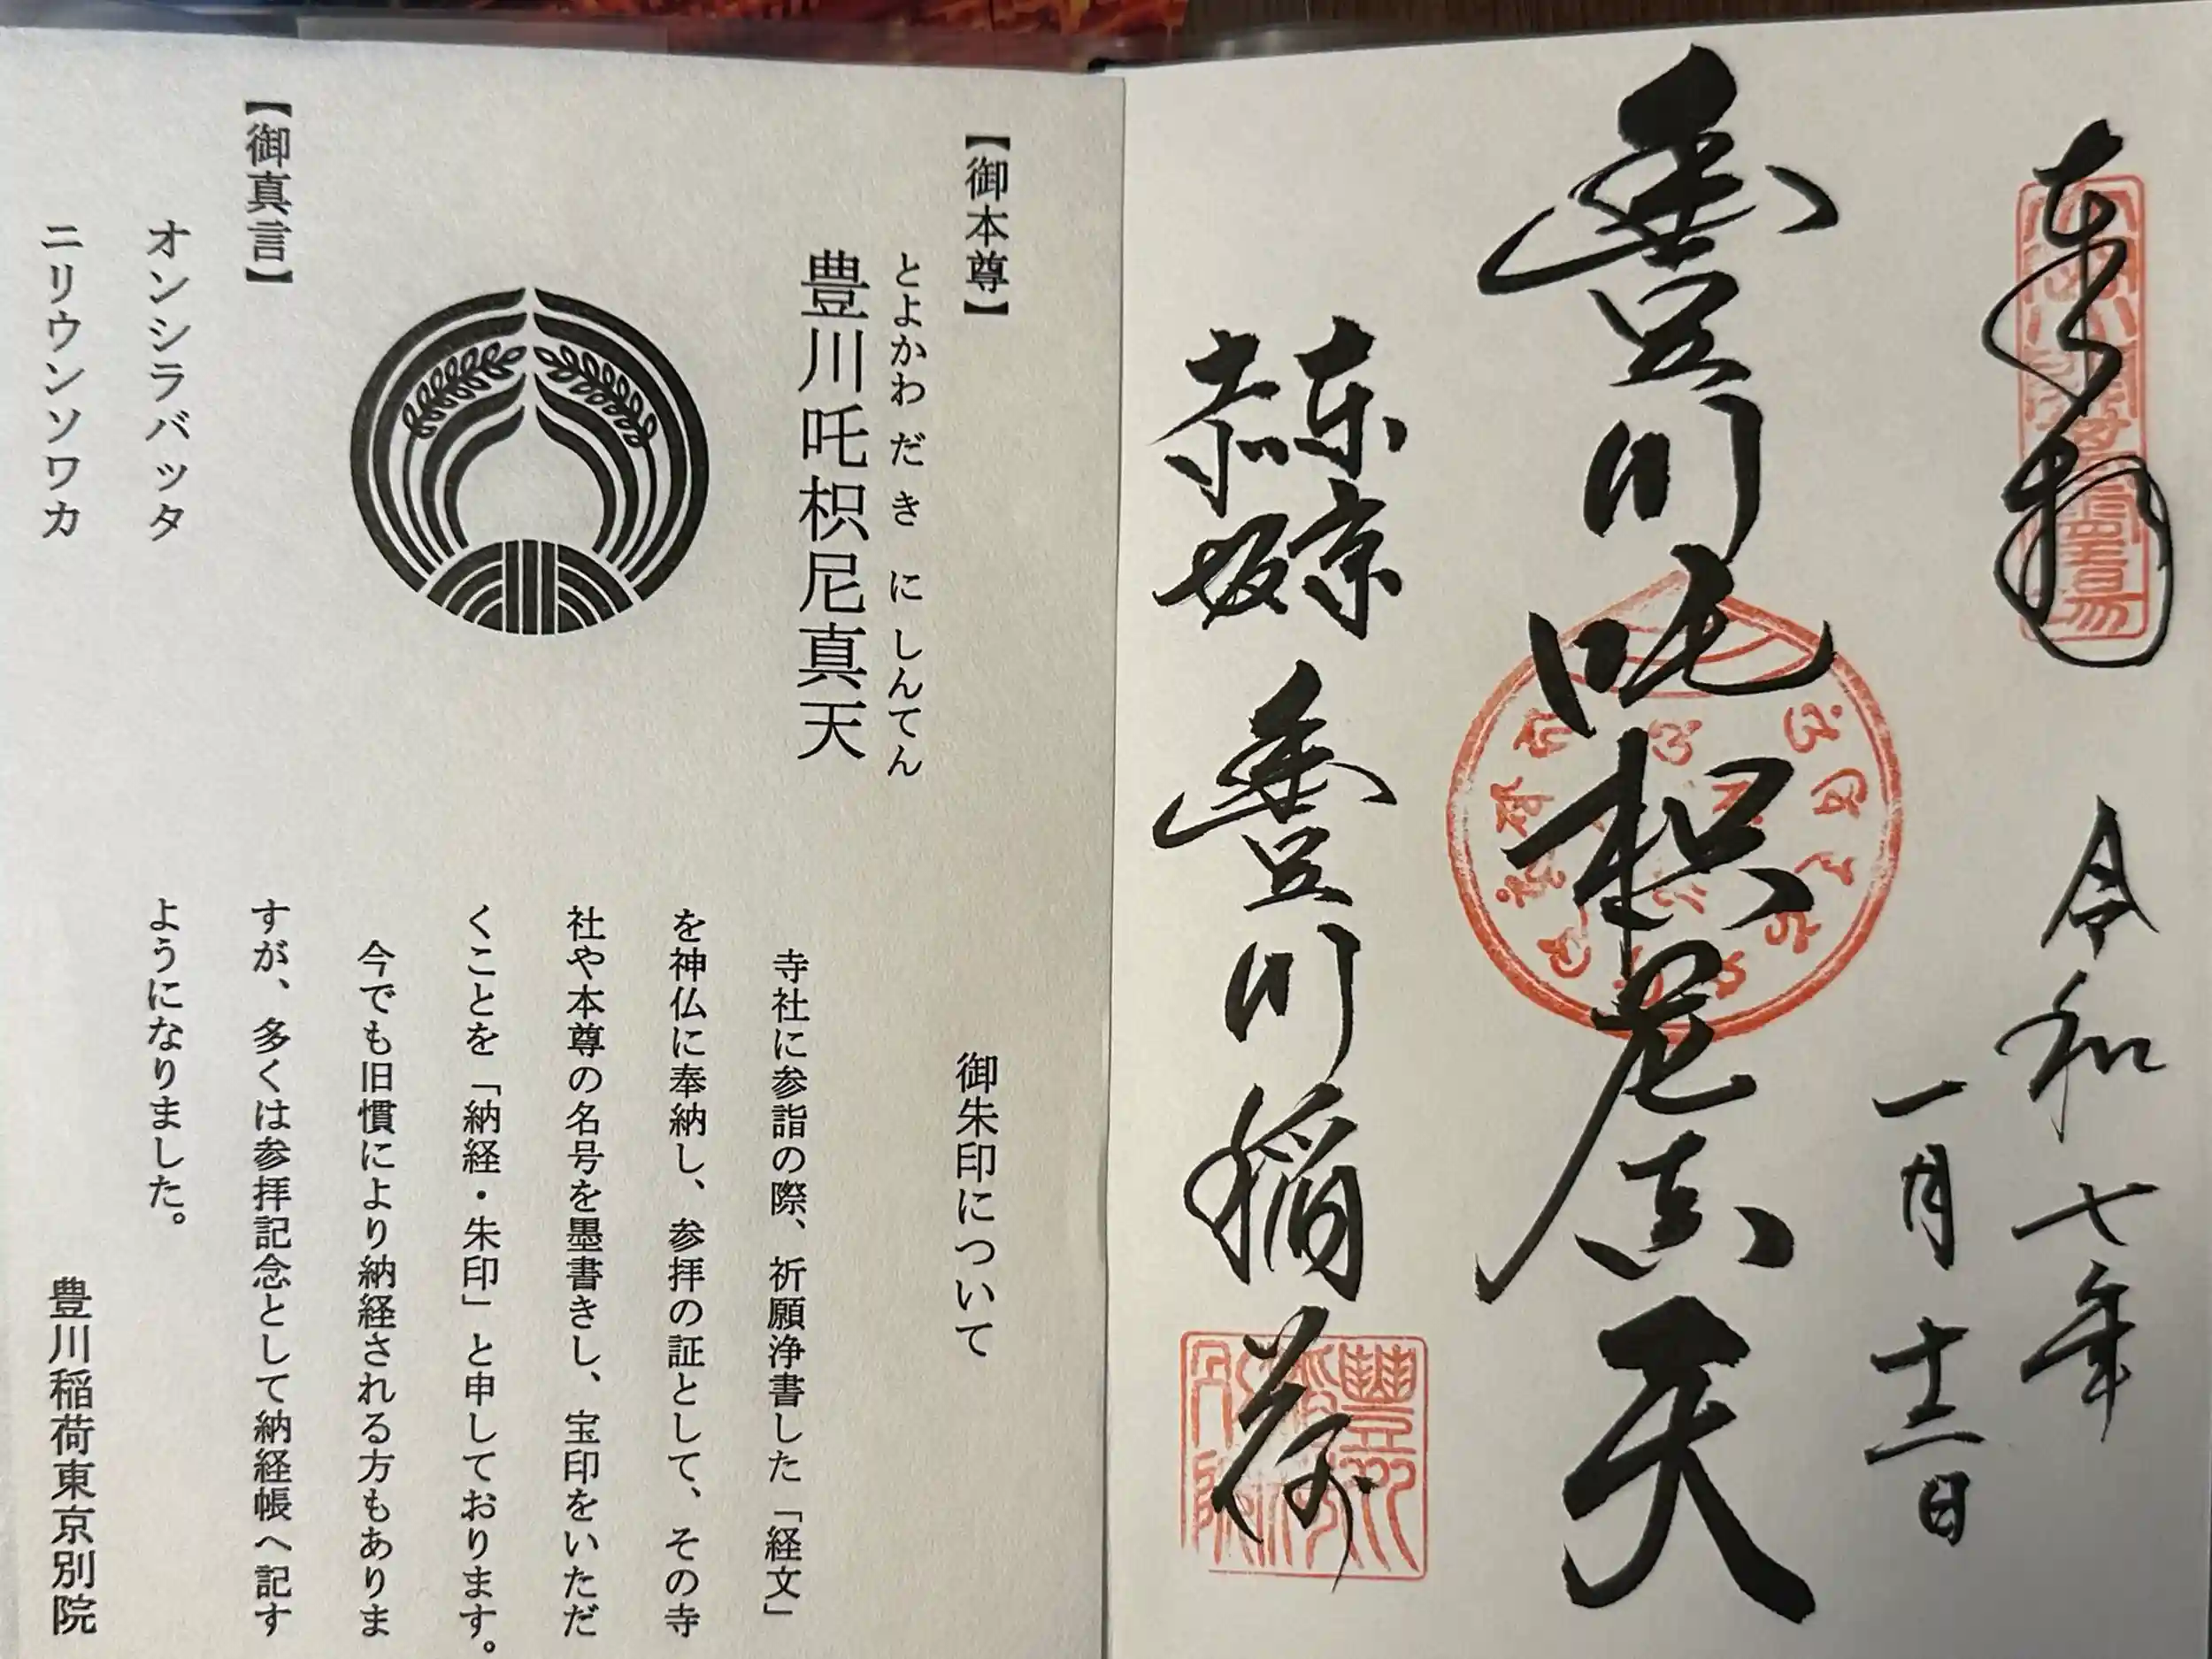 奉拝
令和七年
一月十二日
豊川吒枳尼真天
東京
赤坂
豊川稲荷
【御本尊】
とよかわだきにしんてん
豊川吒枳尼真天
【御真言】
オンシラバッタ
ニリウンソワカ
御朱印について
寺社に参詣の際、祈願浄書した「経文」
を神仏に奉納し、参拝の証として、その寺
社や本尊の名号を墨書きし、宝印をいただ
くことを「納経・朱印」と申しております。
今でも旧慣により納経される方もありま
すが、多くは参拝記念として納経帳へ記す
ようになりました。
豊川稲荷東京別院